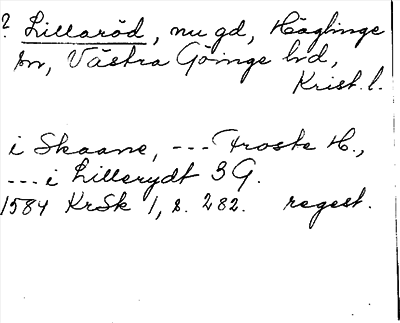 ? Lillaröd, nu gd, Häglinge
sn, Västra Göinge hd,
Krist. l.
i Skaane, --- Froste H.,
--- i Lillerydt 3 G.
1584 KrSk 1, s. 282. regest.